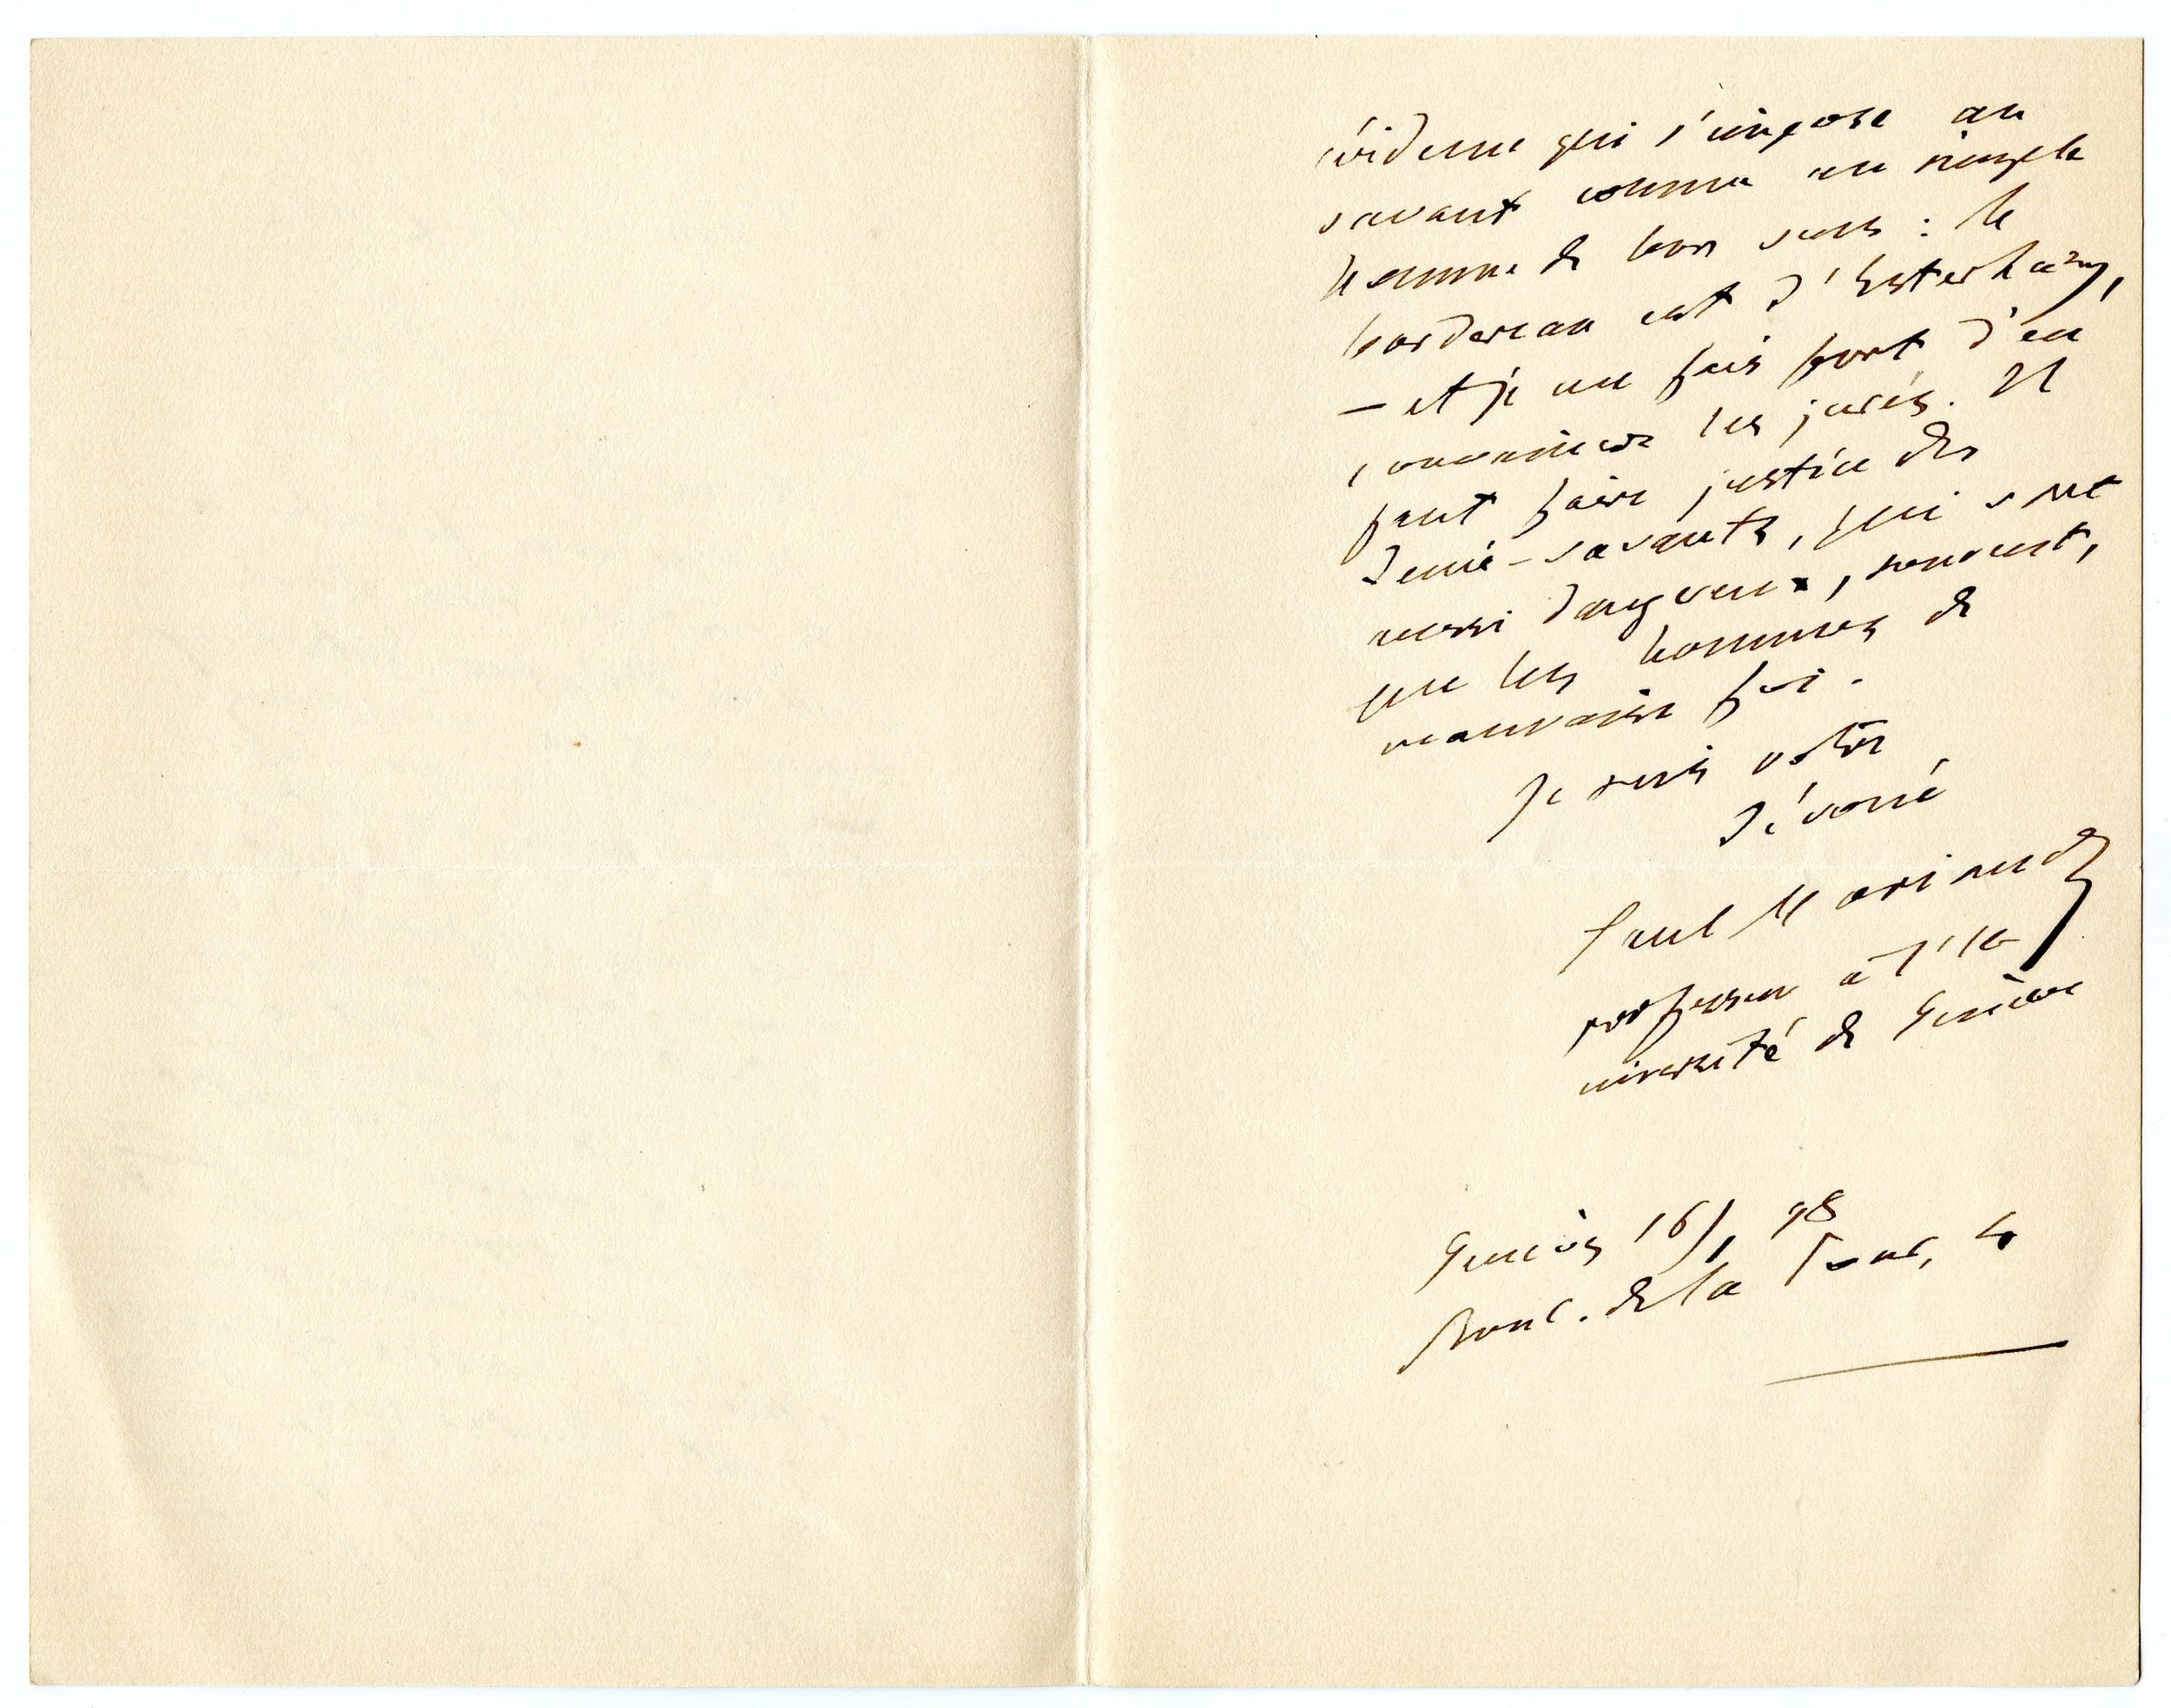 évidence qui s'impose au
savant comme au simple
homme de bon sens : le
bordereau est d'Esterhazy,
— et je me fais fort d'en
convaincre les jurés. Il
faut faire justice des
demi-savants, qui sont
aussi dangereux, souvent,
que les hommes de
mauvaise foi.
Je suis votre
dévoué
Paul Moriaud
professeur à l'U-
niversité de Genève
Genève 16/1 98
Boul. de la Tour, 4